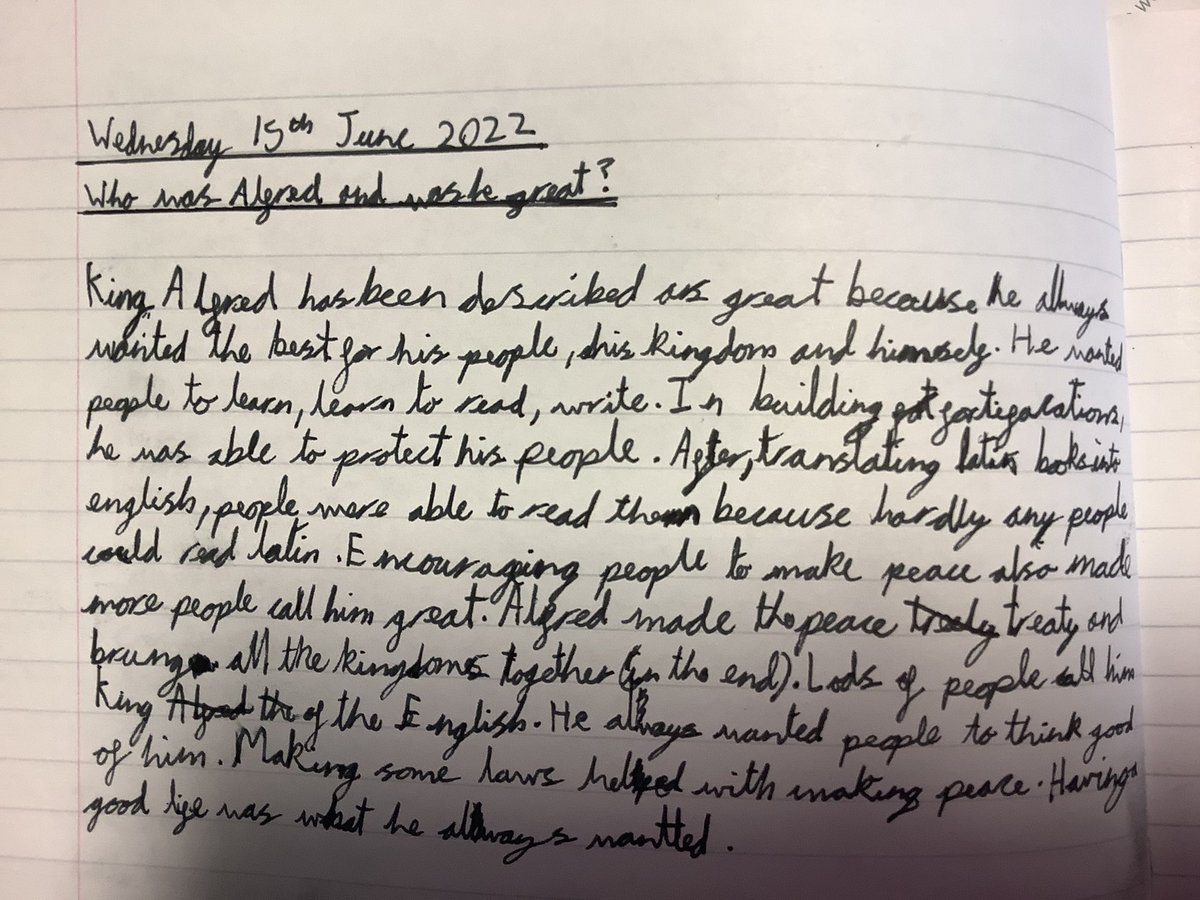 Wednesday 15th June 2022
Who was Alfred and was he great?
King Alfred has been described as great because he allways
wanted the best for his people, his kingdom and himself. He wanted
people to learn, learn to read, write. In building fortifacations,
he was able to protect his people. After, translating latin books into
english, people were able to read them because hardly any people
could read latin. Encouraging people to make peace also made
more people call him great. Alfred made the peace treaty and
brung all the kingdoms together (in the end). Lods of people call him
King of the English. He always wanted people to think good
of him. Making some laws helped with making peace. Having a
good life was what he always wantted.